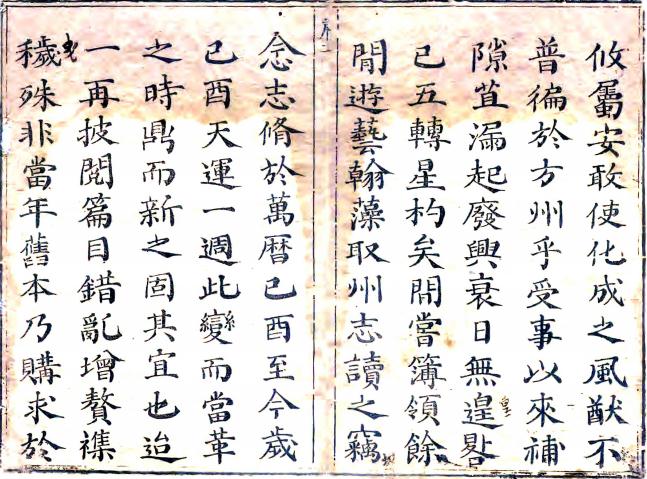 攸屬安敢使化成之風猷不
普徧於方州乎受事以來補
隙苴漏起廢興衰日無遑晷
皇
已五轉星杓矣閒嘗簿領餘
閒遊藝翰藻取州志讀之竊
序二
念志脩於萬曆己酉至今歲
己酉天運一週此變而當革
之時鼎而新之固其宜也迨
一再披閱篇目錯亂增贅襍
穢殊非當年舊本乃購求於